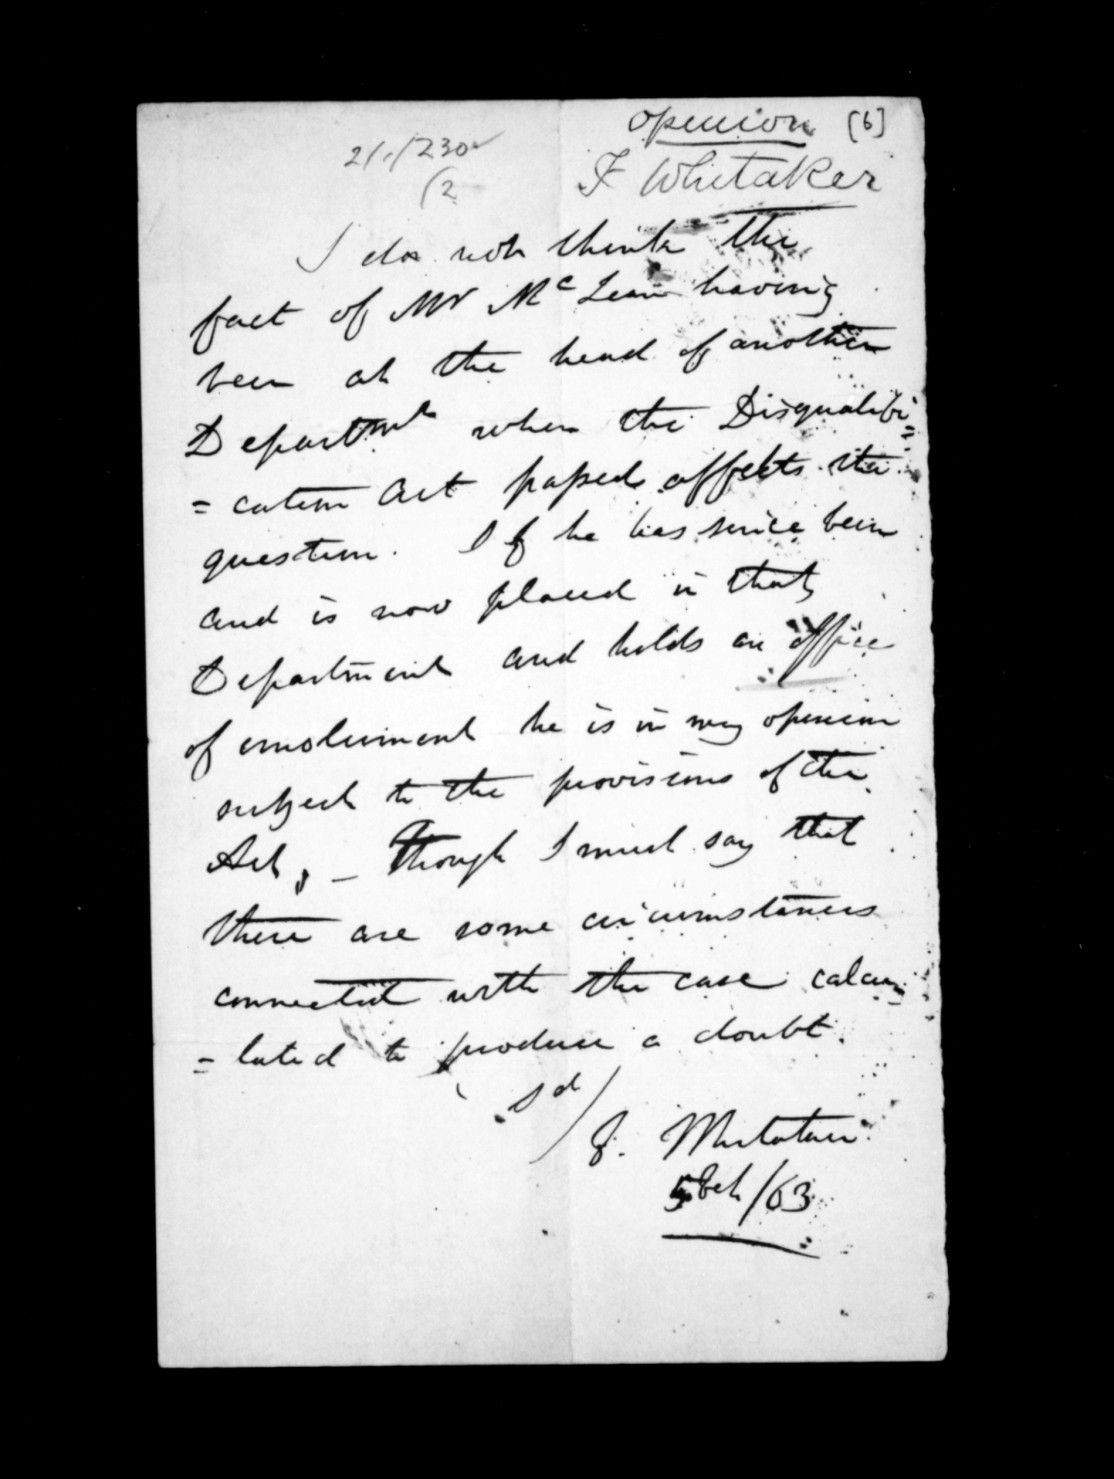 opinion [6]
F Whitaker
21./230
(2
I do not think the
fact of Mr McLean having
been at the head of another
Departmt when the Disqualifi
= cation Act passed affects the
question. If he has since been
and is now placed in that
Department and holds an office
of emolument he is in my opinion
subject to the provisions of the
Act, _ Though I must say that
there are some circumstances
connected with the case calcu
= lated to produce a doubt.
Sd/
F. Whitaker
5 Feb/63